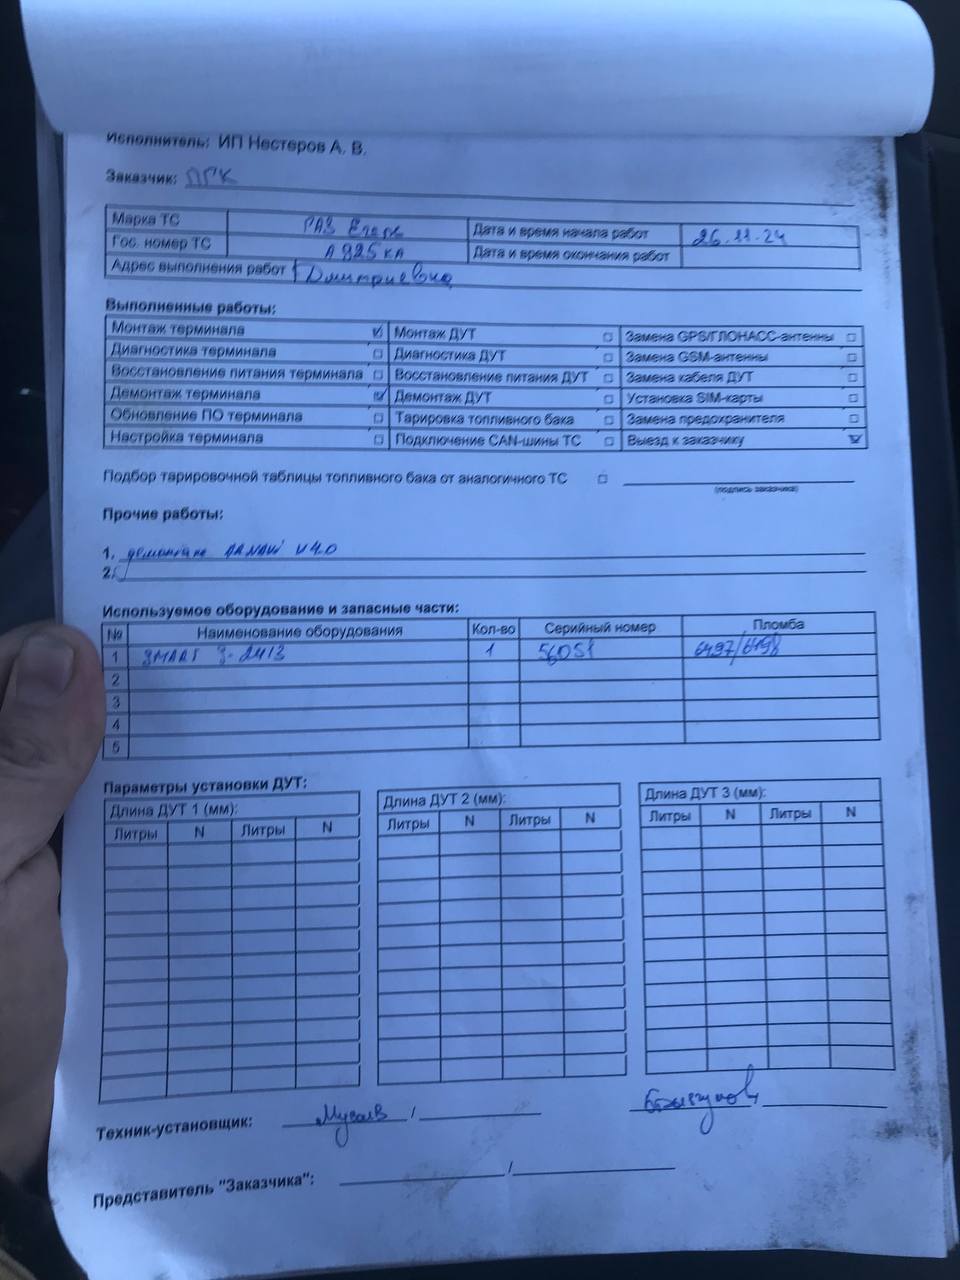 Исполнитель: ИП Нестеров А. В.
Заказчик: ПГК
Марка ТС ГАЗ Егерь Дата и время начала работ 26.11.24
Гос. номер ТС А 925 КА Дата и время окончания работ
Адрес выполнения работ Дмитриевка
Выполненные работы:
Монтаж терминала ☑ Монтаж ДУТ ☐ Замена GPS/ГЛОНАСС-антенны ☐
Диагностика терминала ☐ Диагностика ДУТ ☐ Замена GSM-антенны ☐
Восстановление питания терминала ☐ Восстановление питания ДУТ ☐ Замена кабеля ДУТ ☐
Демонтаж терминала ☑ Демонтаж ДУТ ☐ Установка SIM-карты ☐
Обновление ПО терминала ☐ Тарировка топливного бака ☐ Замена предохранителя ☐
Настройка терминала ☐ Подключение CAN-шины ТС ☐ Выезд к заказчику ☑
Подбор тарировочной таблицы топливного бака от аналогичного ТС ☐
(подпись заказчика)
Прочие работы:
1. демонтаж ARNAVI V4.0
2.
Используемое оборудование и запасные части:
№ Наименование оборудования Кол-во Серийный номер Пломба
1 SMART S-2413 1 56051 6497/6498
2
3
4
5
Параметры установки ДУТ:
Длина ДУТ 1 (мм): Длина ДУТ 2 (мм): Длина ДУТ 3 (мм):
Литры N Литры N Литры N Литры N Литры N Литры N
Техник-установщик: Мусаев /
Представитель "Заказчика": /